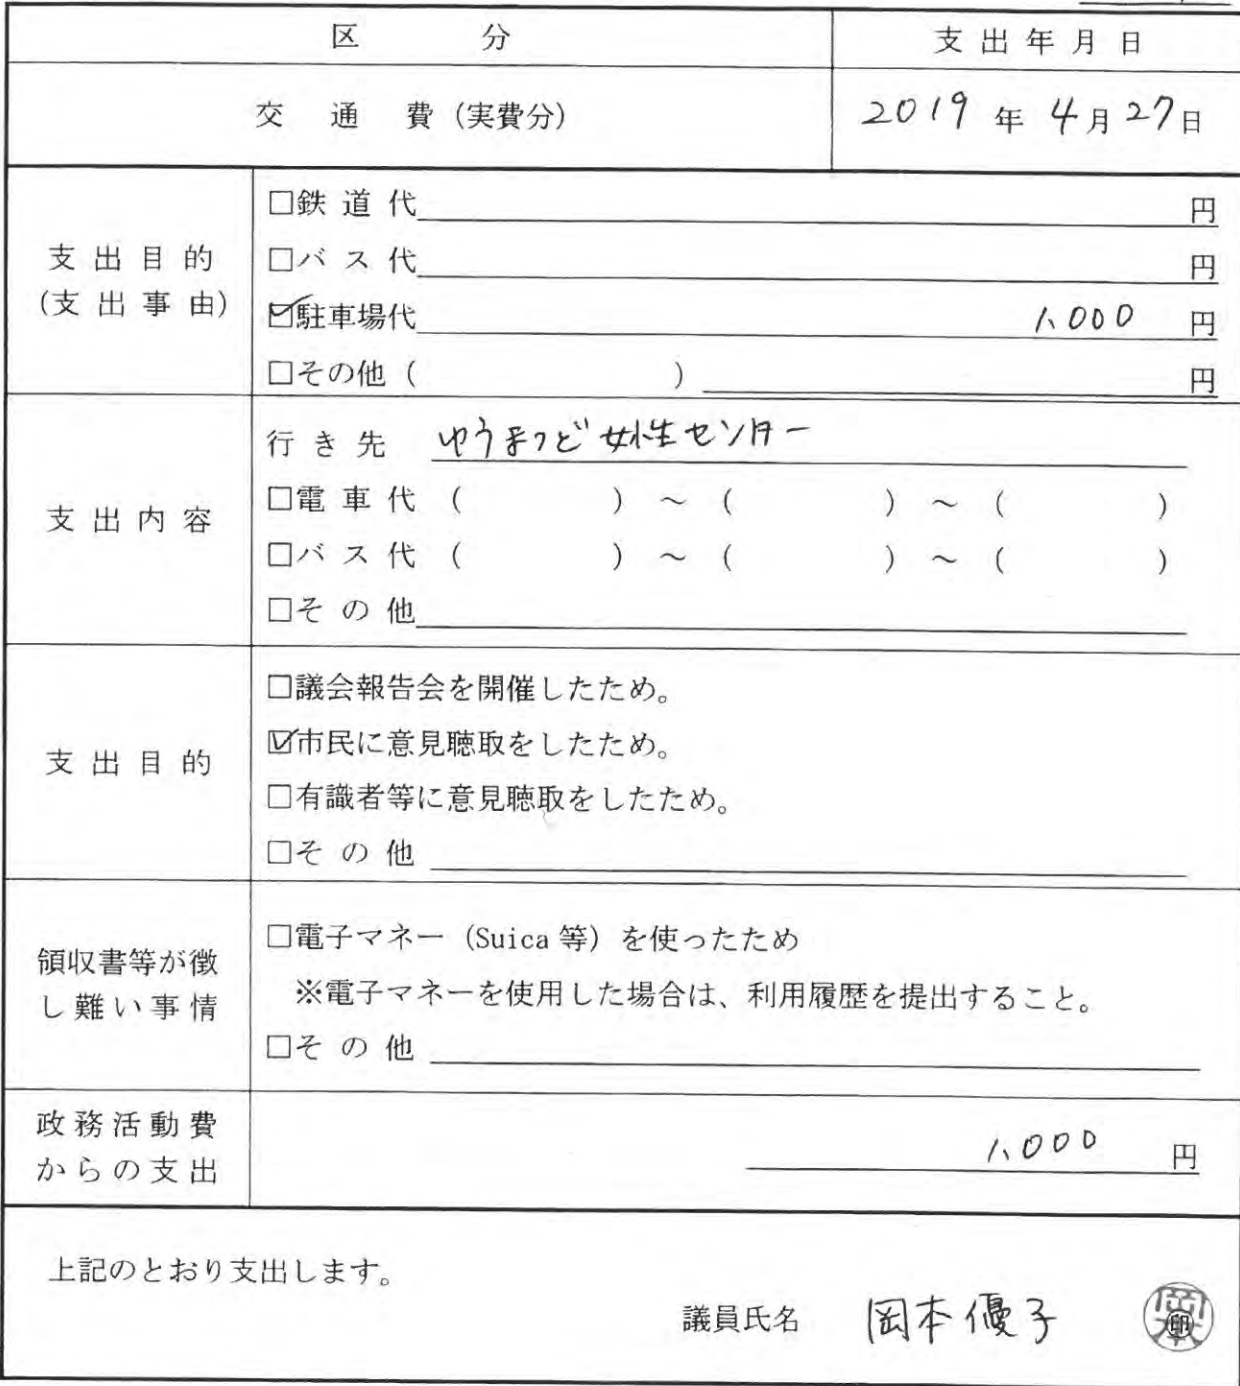 区 分 支出年月日
交通費(実費分) 2019年4月27日
支出目的
(支出事由)
□鉄道代 円
□バス代 円
☑駐車場代 1,000 円
□その他( ) 円
支出内容
行き先 ゆうまつど女性センター
□電車代( )~( )~( )
□バス代( )~( )~( )
□その他
支出目的
□議会報告会を開催したため。
☑市民に意見聴取をしたため。
□有識者等に意見聴取をしたため。
□その他
領収書等が徴
し難い事情
□電子マネー(Suica等)を使ったため
※電子マネーを使用した場合は、利用履歴を提出すること。
□その他
政務活動費
からの支出
1,000 円
上記のとおり支出します。
議員氏名 岡本優子 印